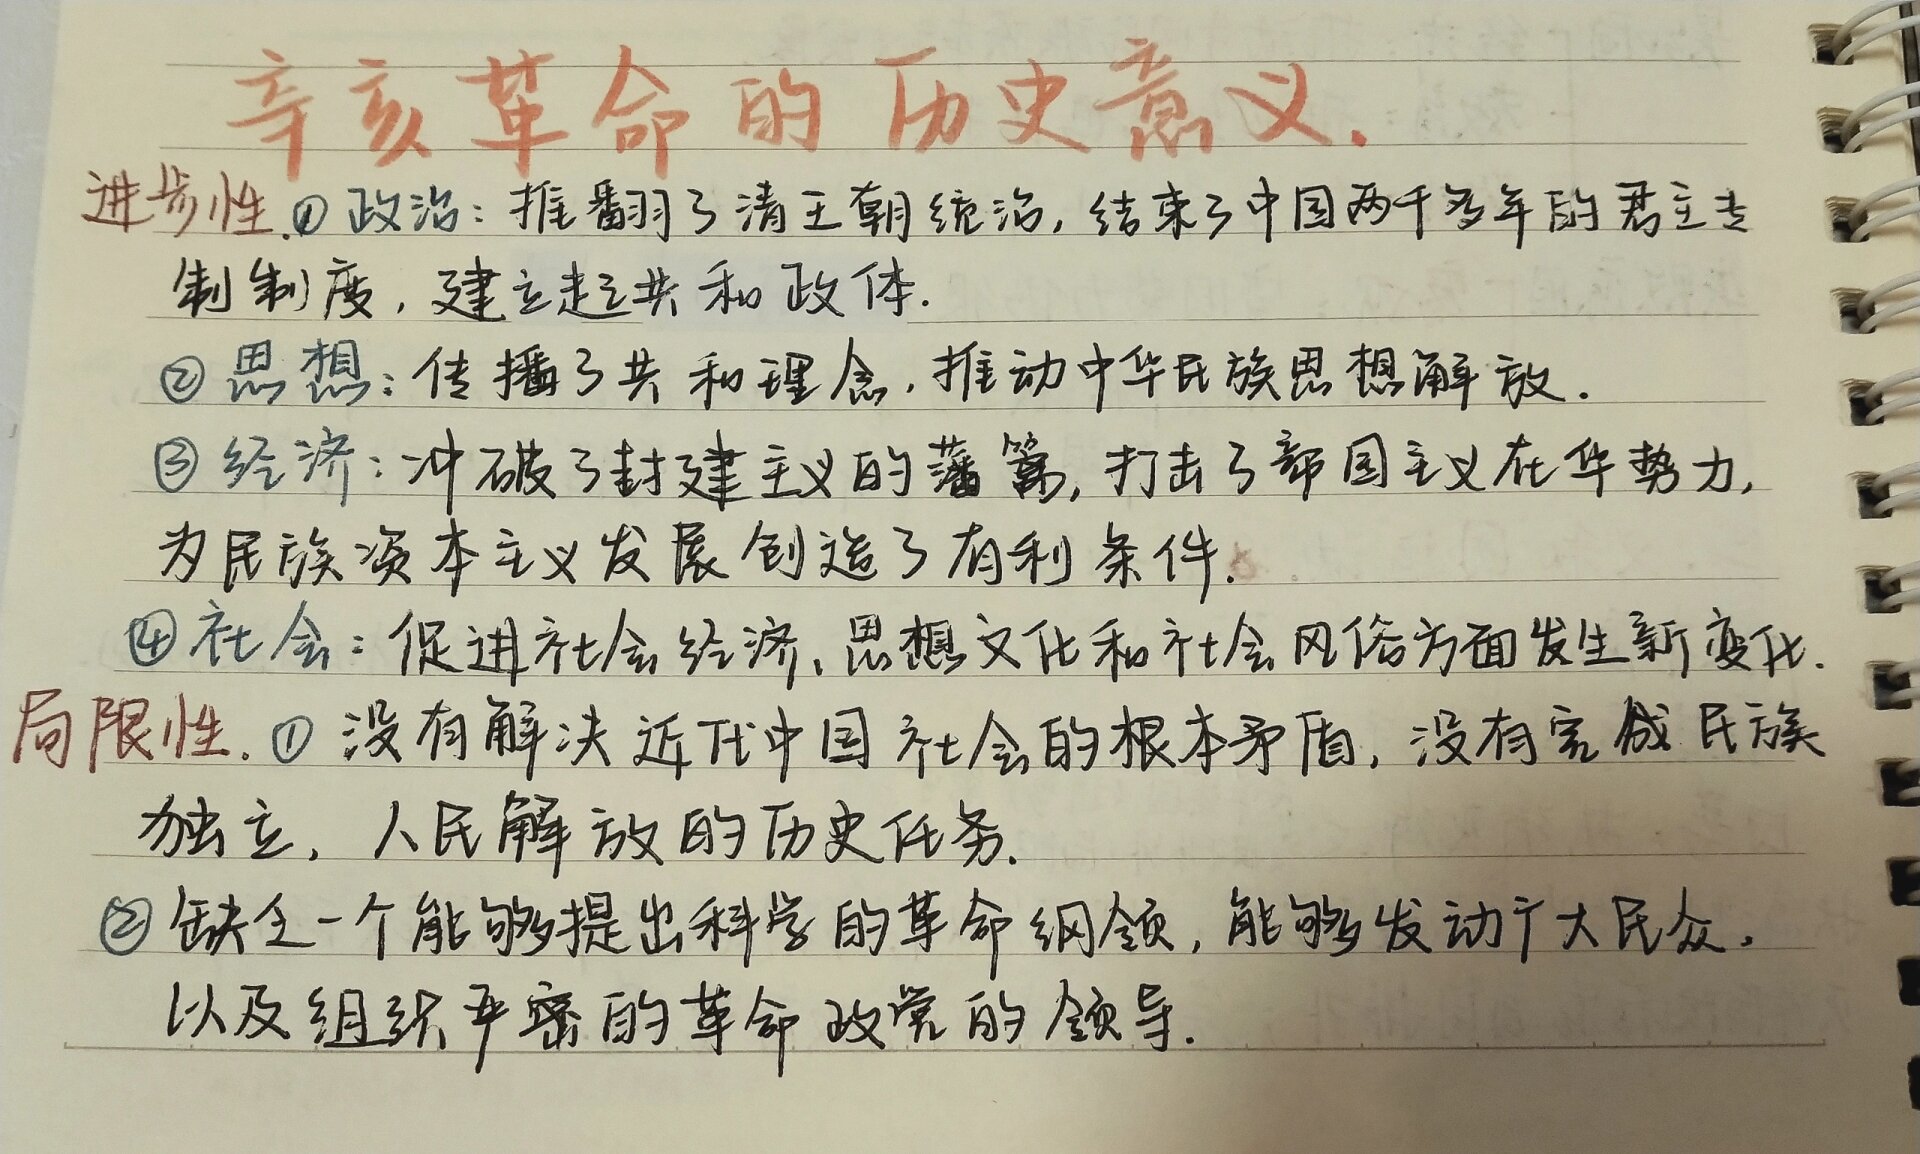 辛亥革命的历史意义.
进步性.①政治：推翻了清王朝统治,结束了中国两千多年的君主专
制制度,建立起共和政体.
②思想：传播了共和理念,推动中华民族思想解放.
③经济：冲破了封建主义的藩篱,打击了帝国主义在华势力,
为民族资本主义发展创造了有利条件.
④社会：促进社会经济、思想文化和社会风俗方面发生新变化.
局限性.①没有解决近代中国社会的根本矛盾,没有完成民族
独立,人民解放的历史任务.
②缺乏一个能够提出科学的革命纲领,能够发动广大民众,
以及组织严密的革命政党的领导.